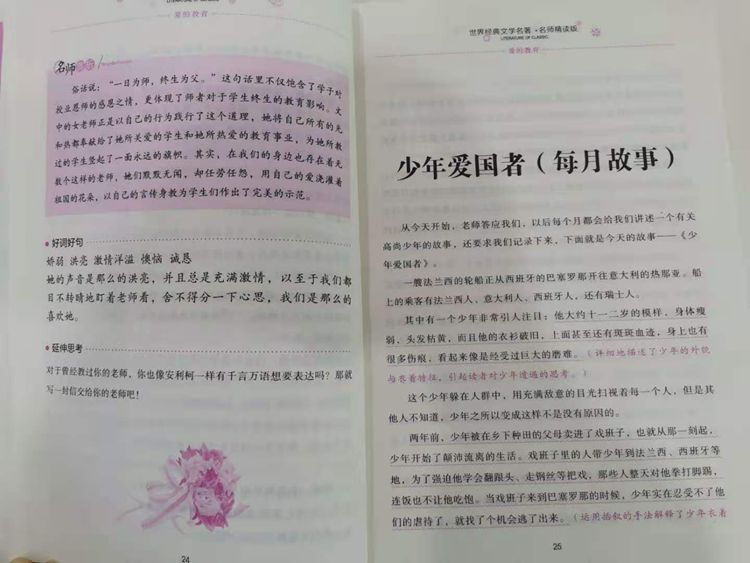 爱的教育
名师
俗话说:“一日为师,终生为父。”这句话里不仅饱含了学子对
授业恩师的感恩之情,更体现了师者对于学生终生的教育影响。文
中的女老师正是以自己的行为践行了这个道理,她将自己所有的光
和热都奉献给了她所关爱的学生和她所热爱的教育事业,为她所教
过的学生竖起了一面永远的旗帜。其实,在我们的身边也存在着无
数个这样的老师,她们默默无闻,却任劳任怨,用自己的爱浇灌着
祖国的花朵,以自己的言传身教为学生们作出了完美的示范。
好词好句
娇弱 洪亮 激情洋溢 懊恼 诚恳
她的声音是那么的洪亮,并且总是充满激情,以至于我们都
目不转睛地盯着老师看,舍不得分一下心思,我们是那么的
喜欢她。
延伸思考
对于曾经教过你的老师,你也像安利柯一样有千言万语想要表达吗?那就
写一封信交给你的老师吧!
24
世界经典文学名著·名师精读版
LITERATURE OF CLASSIC
爱的教育
少年爱国者(每月故事)
从今天开始,老师答应我们,以后每个月都会给我们讲述一个有关
高尚少年的故事,还要求我们记录下来,下面就是今天的故事——《少
年爱国者》。
一艘法兰西的轮船正从西班牙的巴塞罗那开往意大利的热那亚。船
上的乘客有法兰西人、意大利人、西班牙人,还有瑞士人。
其中有一个少年非常引人注目:他大约十一二岁的模样,身体瘦
弱,头发枯黄,而且他的衣衫破旧,上面甚至还有斑斑血迹,身上也有
很多伤痕,看起来像是经受过巨大的磨难。(详细地描述了少年的外貌
与衣着特征,引起读者对少年遭遇的思考。)
这个少年躲在人群中,用充满敌意的目光扫视着每一个人,但是其
他人不知道,少年之所以变成这样不是没有原因的。
两年前,少年被在乡下种田的父母卖进了戏班子,也就从那一刻起,
少年开始了颠沛流离的生活。戏班子里的人带少年到法兰西、西班牙等
地,为了强迫他学会翻跟头、走钢丝等把戏,那些人整天对他拳打脚踢,
连饭也不让他吃饱。当戏班子来到巴塞罗那的时候,少年实在忍受不了他
们的虐待了,就找了个机会逃了出来。(运用插叙的手法解释了少年衣着
25